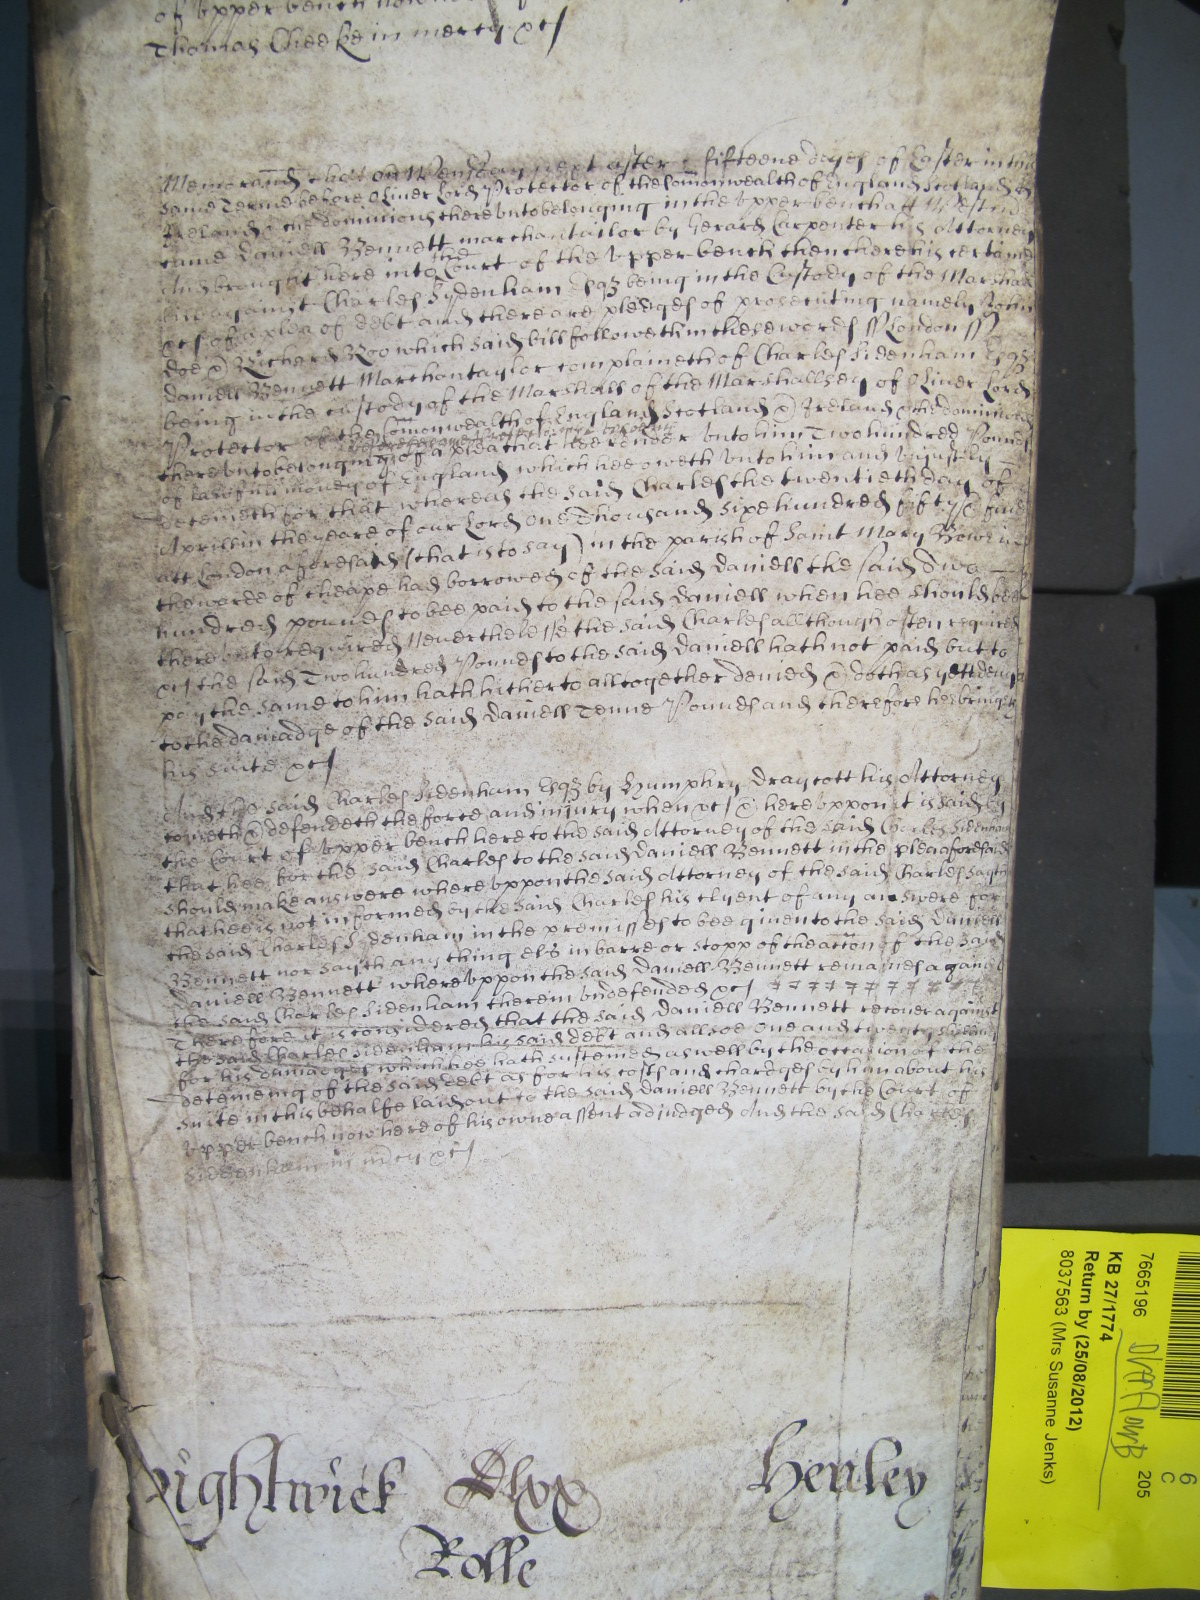 of Upper bench
Thomas Cheeke in mercy xc/
Memorand that on Wensday next after fifteene dayes of Easter in this
same Terme before Oliver Lord Protector of the Comonwealth of England Scotland &
Ireland & the dominions thereunto belonging in the upper bench att Westm
came Daniell Bennett marchantailor by Gerard Carpenter his Attorney
And brought here into the Court of the Upper bench then there his certaine
bill against Charles Sydenham Esqz being in the Custody of the Marshall
xc/ of a plea of debt and there are pledges of prosecuting namely John
Doe & Richard Roo which said bill followeth in these words ss London ss
Daniell Bennett Marchantaylor complaineth of Charles Sidenham Esqz
being in the custody of the Marshall of the Marshallsey of Oliver Lord
Protector of the Comonwealth of England Scotland & Ireland & the dominions
thereunto belonging of a plea that he render unto him Two hundred Pounds
of lawfull money of England which hee oweth unto him and unjustly
deteineth for that whereas the said Charles the twentieth day of
Aprill in the yeare of our Lord One Thousand sixe hundred fifty & five
att London aforesaid (that is to say) in the parish of Saint Mary Bowe in
the warde of Cheape had borrowed of the said Daniell the said Two
hundred pounds to bee paid to the said Daniell when hee should bee
thereunto required Neverthelesse the said Charles allthough often required
xc/ the said Two hundred Pounds to the said Daniell hath not paid but to
pay the same to him hath hitherto alltogether denied & doth as yett deny
to the damadge of the said Daniell Tenne Pounds and therefore he bringeth
his suite xc/
And the said Charles Sidenham Esqz by Humphry Draycott his Attorney
cometh & defendeth the force and injury when xc/ & hereuppon it is said by
the Court of Upper bench here to the said Attorney of the said Charles Sidenham
that hee for the said Charles to the said Daniell Bennett in the plea aforesaid
should make answere whereuppon the said Attorney of the said Charles sayth
that hee is not informed by the said Charles his Clyent of any answere for
the said Charles Sidenham in the premisses to bee given to the said Daniell
Bennett nor sayth any thing els in barre or stopp of the accon of the said
Daniell Bennett whereuppon the said Daniell Bennett remaines against
the said Charles Sidenham therein undefended xc/
Therefore it is considered that the said Daniell Bennett recover against
the said Charles Sidenham his said debt and allsoe One and twenty
for his damadges which hee hath susteined aswell by the occasion of the
deteineing of the said debt as for his costs and chardges by him about his
suite in this behalfe laid out to the said Daniell Bennett by the Court of
Upper bench now here of his owne assent adjudged And the said Charles
Siddenham in mcy xc/
Wightwick Dlxx Henley
Rolle
7665196
KB 27/1774
Return by (25/08/2012)
8037563 (Mrs Susanne Jenks)
205
C
6